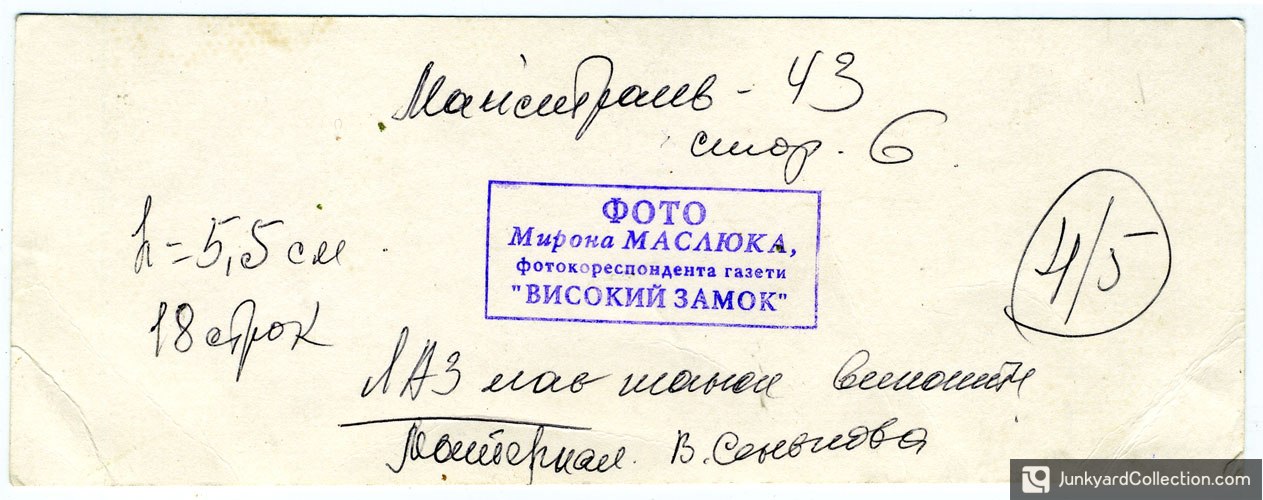 Магістраль - 43
стор. 6
ФОТО
Мирона МАСЛЮКА,
фотокореспондента газети
"ВИСОКИЙ ЗАМОК"
h = 5,5 см
18 строк
4/5
ЛАЗ має шанси
Материал. В.
JunkyardCollection.com